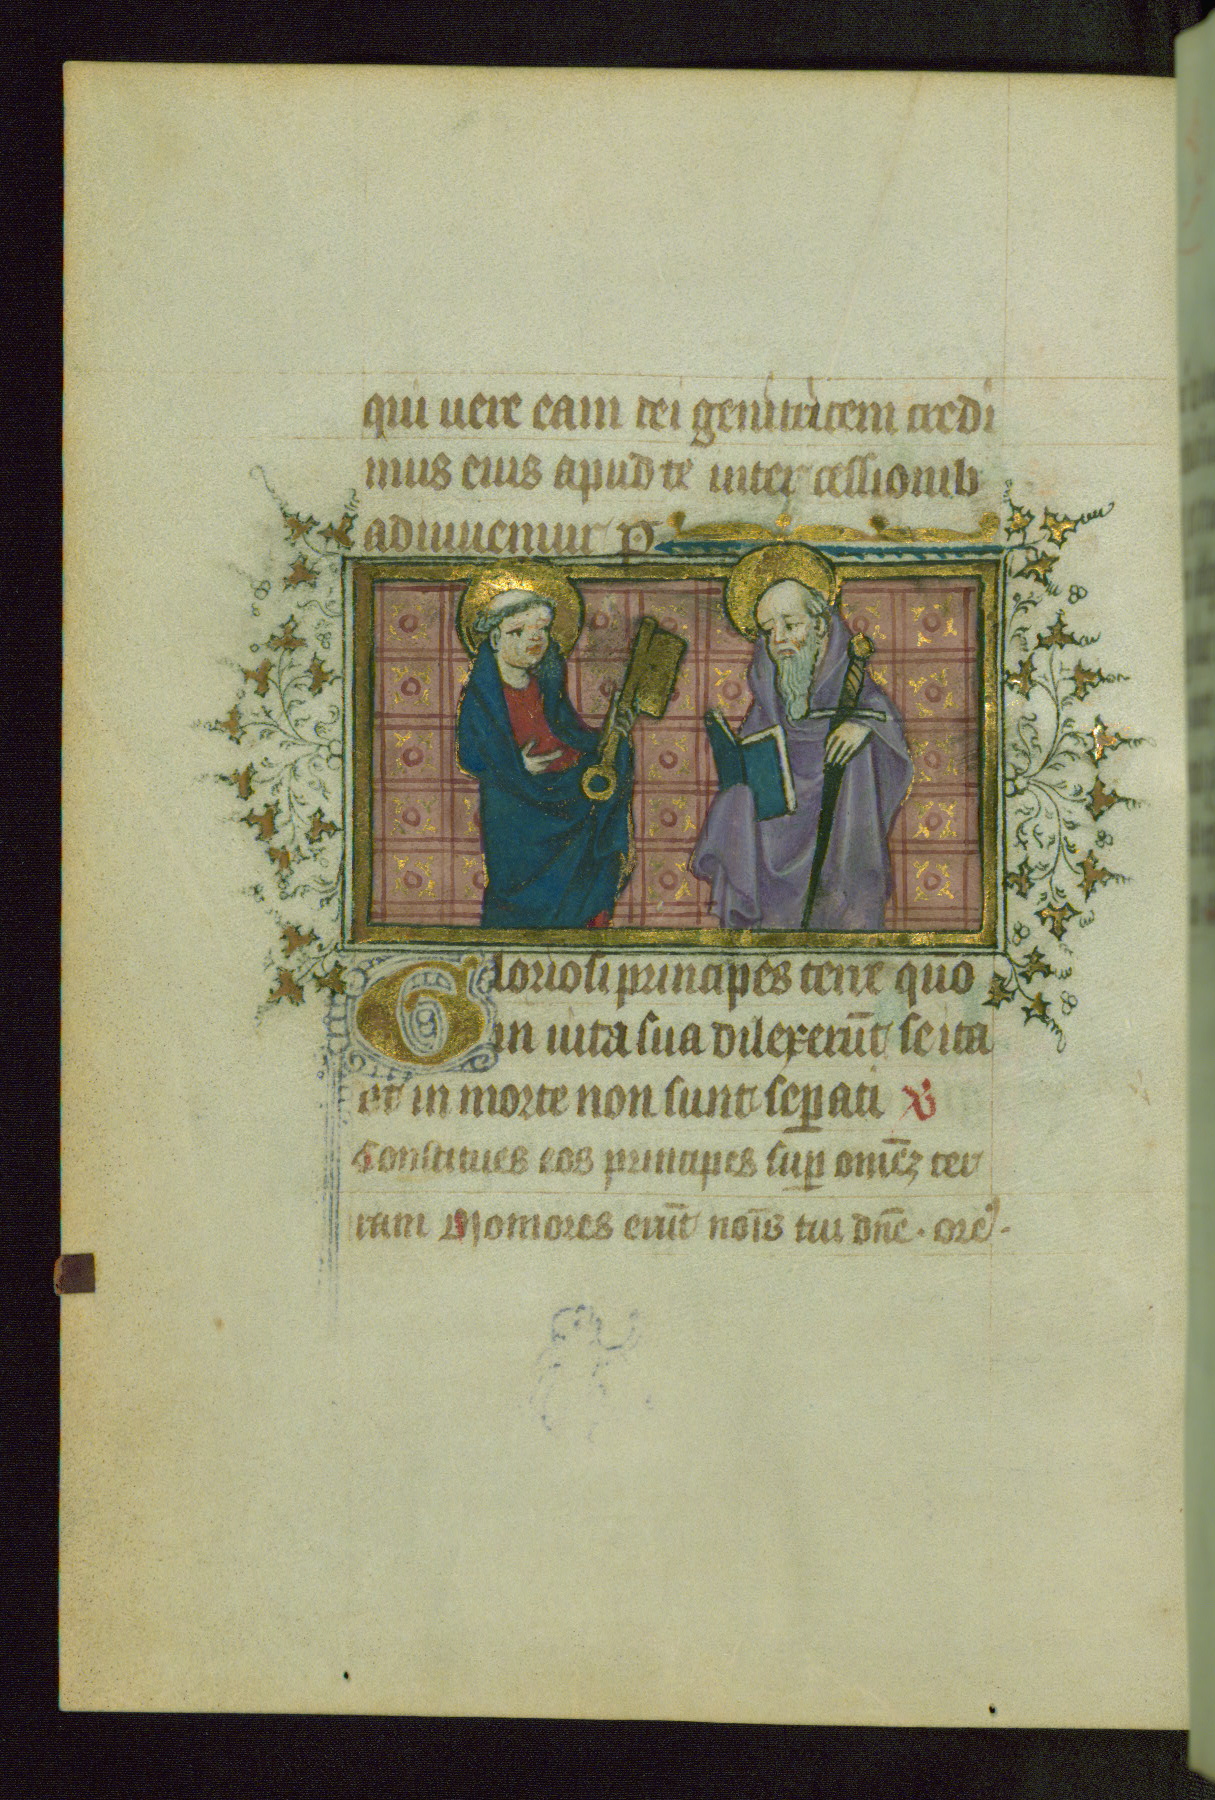 qui uere eam dei genitricem credi
mus eius apud te intercessionib
adiuuemur P
Gloriosi principes terre quo
in uita sua dilexerūt se ita
et in morte non sunt sepati V
Constitues eos principes sup omēz ter
ram Memores erūt nōīs tui dn̄e . ore